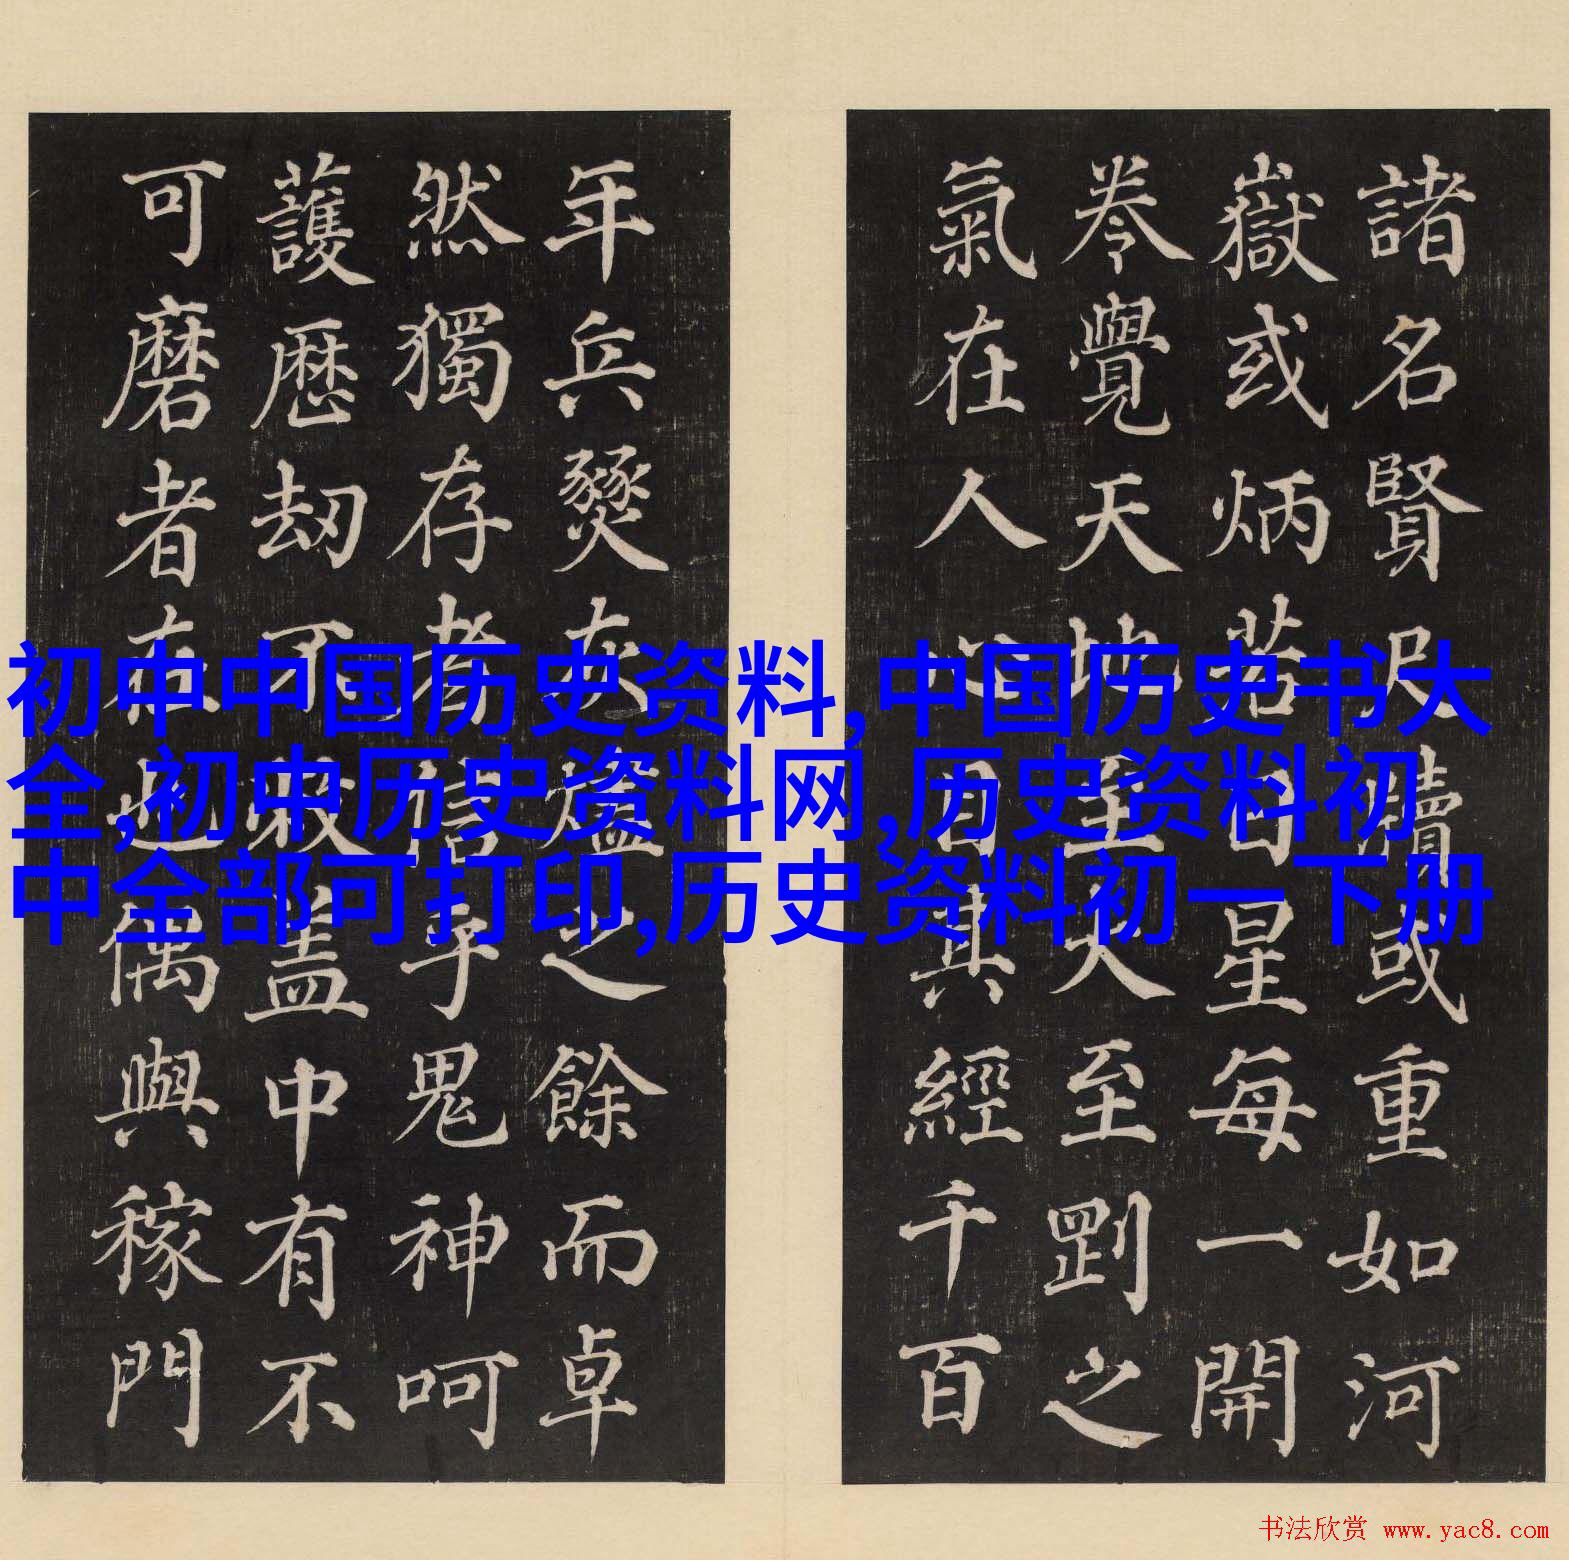 諸名賢尺牘或重如河
嶽或炳若日星每一開
卷覺天地至大至剛之
氣在人心目其經千百
年兵燹灰燼之餘而卓
然獨存者信乎鬼神呵
護厯劫不敝蓋中有不
可磨者在也偶與稼門
初中中国历史资料,中国历史书大
全,初中历史资料网,历史资料初
中全部可打印,历史资料初一下册
书法欣赏 www.yac8.com